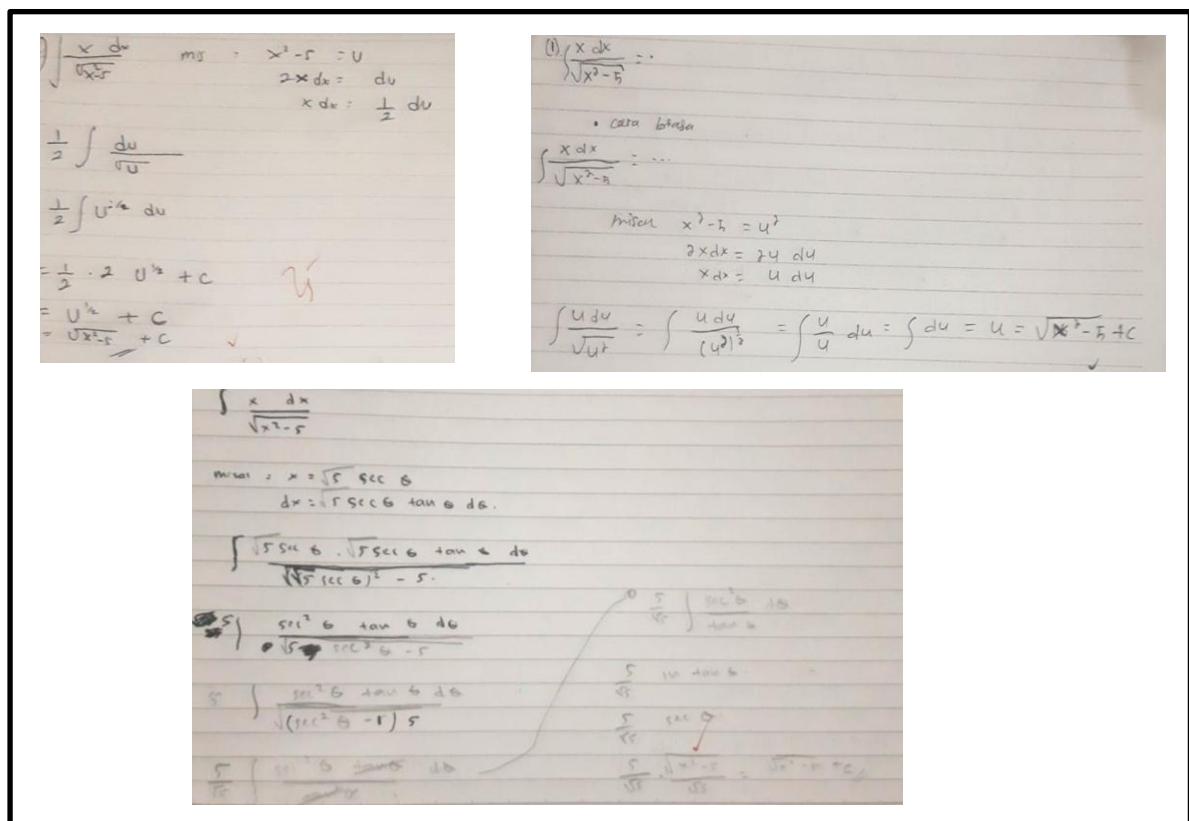 ∫ x dx / √x²-5   mis : x²-5 = u
2x dx = du
x dx = 1/2 du
1/2 ∫ du / √u
1/2 ∫ u^-1/2 du
= 1/2 · 2 u^1/2 + c
= u^1/2 + c
= √x²-5 + c
(1) ∫ x dx / √x²-5 = ..
• cara biasa
∫ x dx / √x²-5 = ...
misal x²-5 = u²
2x dx = 2u du
x dx = u du
∫ u du / √u² = ∫ u du / (u²)^½ = ∫ u/u du = ∫ du = u = √x²-5 + c
∫ x dx / √x²-5
misal : x = √5 sec θ
dx = √5 sec θ tan θ dθ.
∫ √5 sec θ . √5 sec θ tan θ dθ / √(√5 sec θ)² - 5.
5 ∫ sec² θ tan θ dθ / √5 sec² θ - 5
5 ∫ sec² θ tan θ dθ / √(sec² θ - 1) 5
5/√5 ∫ sec² θ tan θ dθ
5/√5 ∫ sec² θ dθ / tan θ
5/√5 ln tan θ
5/√5 sec θ
5/√5 . √x²-5 / √5 = √x²-5 + c